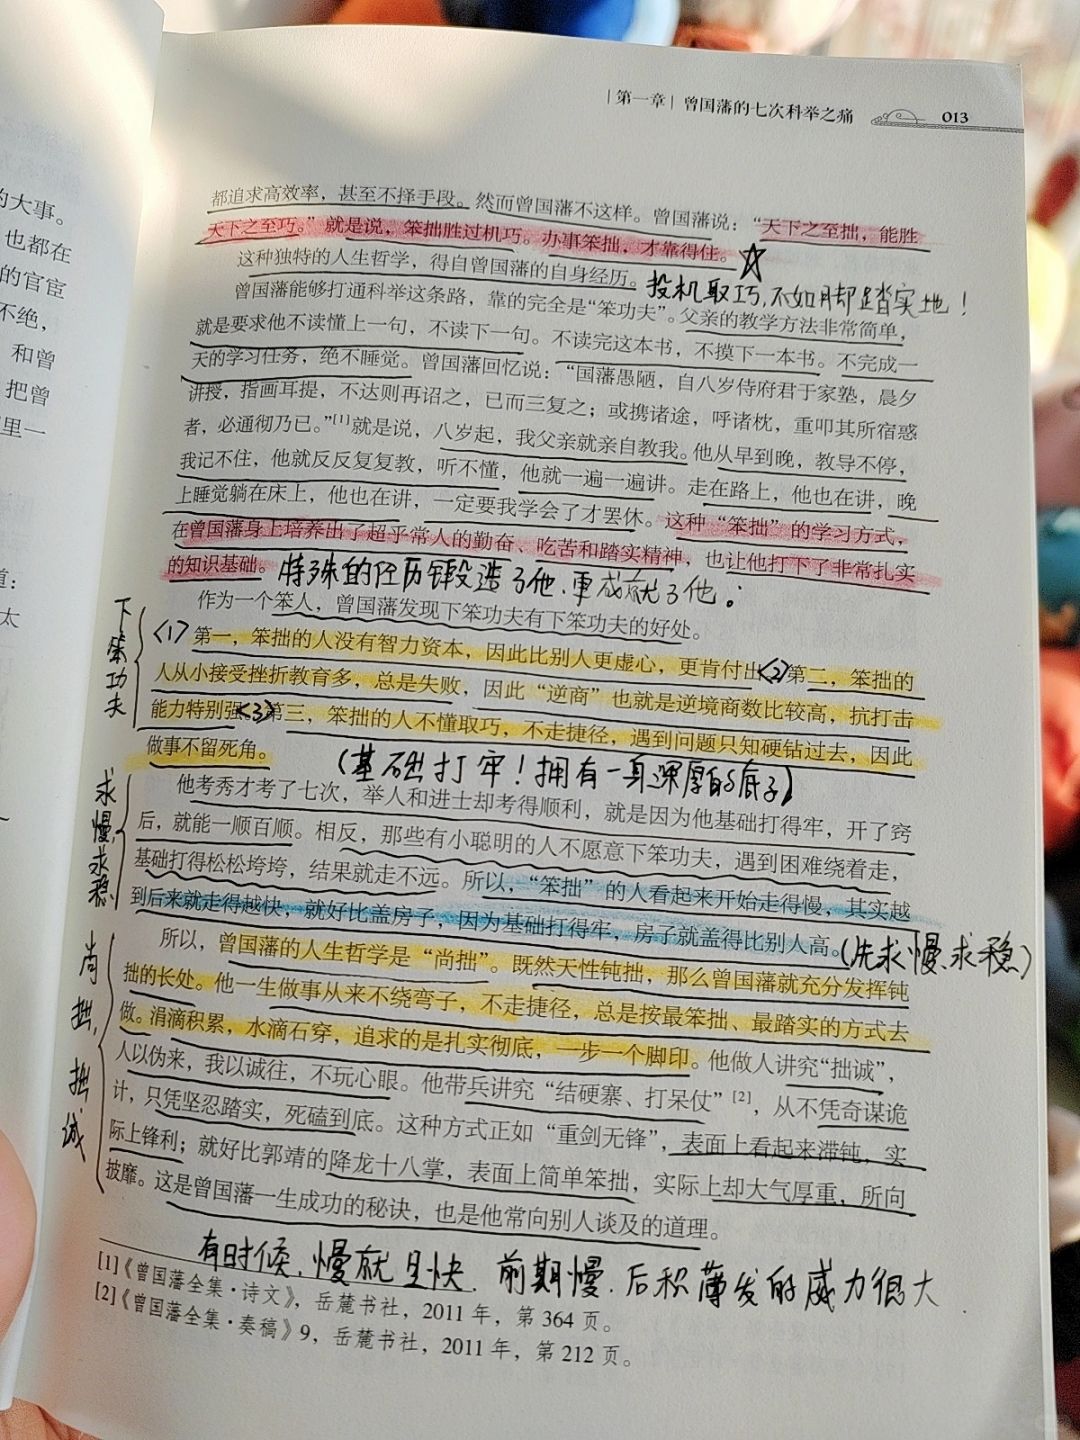 的大事。
也都在
的官宦
不绝，
和曾
把曾
里一
道：
太
|第一章| 曾国藩的七次科举之痛 013
都追求高效率，甚至不择手段。然而曾国藩不这样。曾国藩说：“天下之至拙，能胜
天下之至巧。”就是说，笨拙胜过机巧。办事笨拙，才靠得住。☆
这种独特的人生哲学，得自曾国藩的自身经历。
投机取巧，不如脚踏实地！
曾国藩能够打通科举这条路，靠的完全是“笨功夫”。父亲的教学方法非常简单，
就是要求他不读懂上一句，不读下一句。不读完这本书，不摸下一本书。不完成一
天的学习任务，绝不睡觉。曾国藩回忆说：“国藩愚陋，自八岁侍府君于家塾，晨夕
讲授，指画耳提，不达则再诏之，已而三复之；或携诸途，呼诸枕，重叩其所宿惑
者，必通彻乃已。”[1]就是说，八岁起，我父亲就亲自教我。他从早到晚，教导不停，
我记不住，他就反反复复教，听不懂，他就一遍一遍讲。走在路上，他也在讲，晚
上睡觉躺在床上，他也在讲，一定要我学会了才罢休。这种“笨拙”的学习方式，
在曾国藩身上培养出了超乎常人的勤奋、吃苦和踏实精神，也让他打下了非常扎实
的知识基础。
特殊的经历锻造了他，更成就了他。
作为一个笨人，曾国藩发现下笨功夫有下笨功夫的好处。
下笨功夫
<1>第一，笨拙的人没有智力资本，因此比别人更虚心，更肯付出<2>第二，笨拙的
人从小接受挫折教育多，总是失败，因此“逆商”也就是逆境商数比较高，抗打击
能力特别强。<3>第三，笨拙的人不懂取巧，不走捷径，遇到问题只知硬钻过去，因此
做事不留死角。
（基础打牢！拥有一身深厚的底子）
求慢，求稳
他考秀才考了七次，举人和进士却考得顺利，就是因为他基础打得牢，开了窍
后，就能一顺百顺。相反，那些有小聪明的人不愿意下笨功夫，遇到困难绕着走，
基础打得松松垮垮，结果就走不远。所以，“笨拙”的人看起来开始走得慢，其实越
到后来就走得越快，就好比盖房子，因为基础打得牢，房子就盖得比别人高。
（先求慢，求稳）
尚拙，拙诚
所以，曾国藩的人生哲学是“尚拙”。既然天性钝拙，那么曾国藩就充分发挥钝
拙的长处。他一生做事从来不绕弯子，不走捷径，总是按最笨拙、最踏实的方式去
做。涓滴积累，水滴石穿，追求的是扎实彻底，一步一个脚印。他做人讲究“拙诚”，
人以伪来，我以诚往，不玩心眼。他带兵讲究“结硬寨、打呆仗”[2]，从不凭奇谋诡
计，只凭坚忍踏实，死磕到底。这种方式正如“重剑无锋”，表面上看起来滞钝，实
际上锋利；就好比郭靖的降龙十八掌，表面上简单笨拙，实际上却大气厚重，所向
披靡。这是曾国藩一生成功的秘诀，也是他常向别人谈及的道理。
有时候，慢就是快，前期慢，后积薄发的威力很大
[1]《曾国藩全集·诗文》，岳麓书社，2011年，第364页。
[2]《曾国藩全集·奏稿》9，岳麓书社，2011年，第212页。